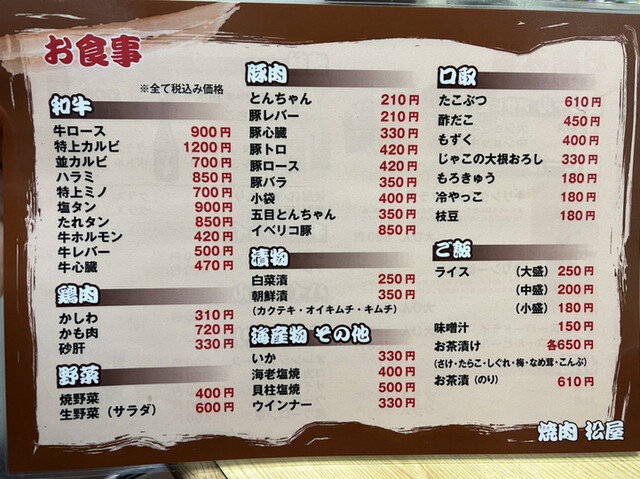 お食事
※全て税込み価格
和牛
牛ロース 900円
特上カルビ 1200円
並カルビ 700円
ハラミ 850円
特上ミノ 700円
塩タン 900円
たれタン 850円
牛ホルモン 420円
牛レバー 500円
牛心臓 470円
鶏肉
かしわ 310円
かも肉 720円
砂肝 330円
野菜
焼野菜 400円
生野菜（サラダ） 600円
豚肉
とんちゃん 210円
豚レバー 210円
豚心臓 330円
豚トロ 420円
豚ロース 420円
豚バラ 350円
小袋 400円
五目とんちゃん 350円
イベリコ豚 850円
漬物
白菜漬 250円
朝鮮漬 350円
（カクテキ・オイキムチ・キムチ）
海産物 その他
いか 330円
海老塩焼 400円
貝柱塩焼 500円
ウインナー 330円
口取
たこぶつ 610円
酢だこ 450円
もずく 400円
じゃこの大根おろし 330円
もろきゅう 180円
冷やっこ 180円
枝豆 180円
ご飯
ライス （大盛） 250円
（中盛） 200円
（小盛） 180円
味噌汁 150円
お茶漬け 各650円
（さけ・たらこ・しぐれ・梅・なめ茸・こんぶ）
お茶漬（のり） 610円
焼肉 松屋